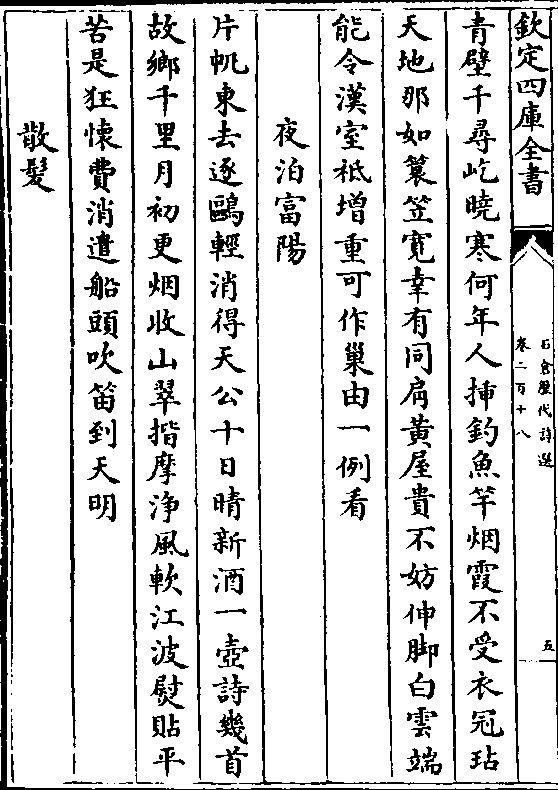 欽定四庫全書
石倉歷代詩選
卷二百十八
五
青壁千尋屹曉寒何年人揷釣魚竿烟霞不受衣冠玷
天地那如簑笠寛幸有同扄黄屋貴不妨伸脚白雲端
能令漢室袛增重可作巢由一例看
夜泊富陽
片帆東去逐鷗輕消得天公十日晴新酒一壺詩幾首
故鄉千里月初更烟收山翠揩摩浄風軟江波熨貼平
苦是狂懐費消遣船頭吹笛到天明
散髪